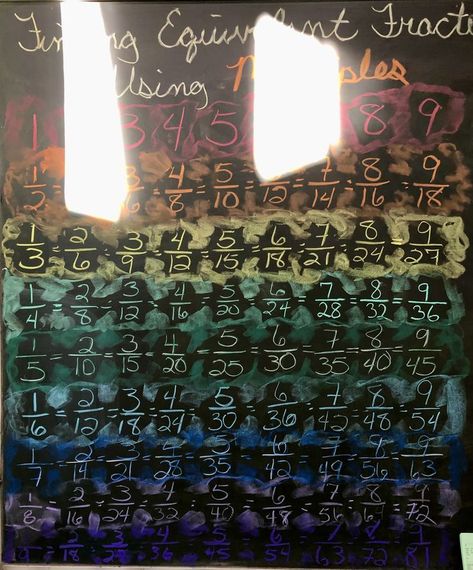 Finding Equivalent Fract
Using Multiples
1 3 4 5 8 9
1/2 = 3/6 = 4/8 = 5/10 = 6/12 = 7/14 = 8/16 = 9/18
1/3 = 2/6 = 3/9 = 4/12 = 5/15 = 6/18 = 7/21 = 8/24 = 9/27
1/4 = 2/8 = 3/12 = 4/16 = 5/20 = 6/24 = 7/28 = 8/32 = 9/36
1/5 = 2/10 = 3/15 = 4/20 = 5/25 = 6/30 = 7/35 = 8/40 = 9/45
1/6 = 2/12 = 3/18 = 4/24 = 5/30 = 6/36 = 7/42 = 8/48 = 9/54
1/7 = 2/14 = 3/21 = 4/28 = 5/35 = 6/42 = 7/49 = 8/56 = 9/63
1/8 = 2/16 = 3/24 = 4/32 = 5/40 = 6/48 = 7/56 = 8/64 = 9/72
1/9 = 2/18 = 3/27 = 4/36 = 5/45 = 6/54 = 7/63 = 8/72 = 9/81